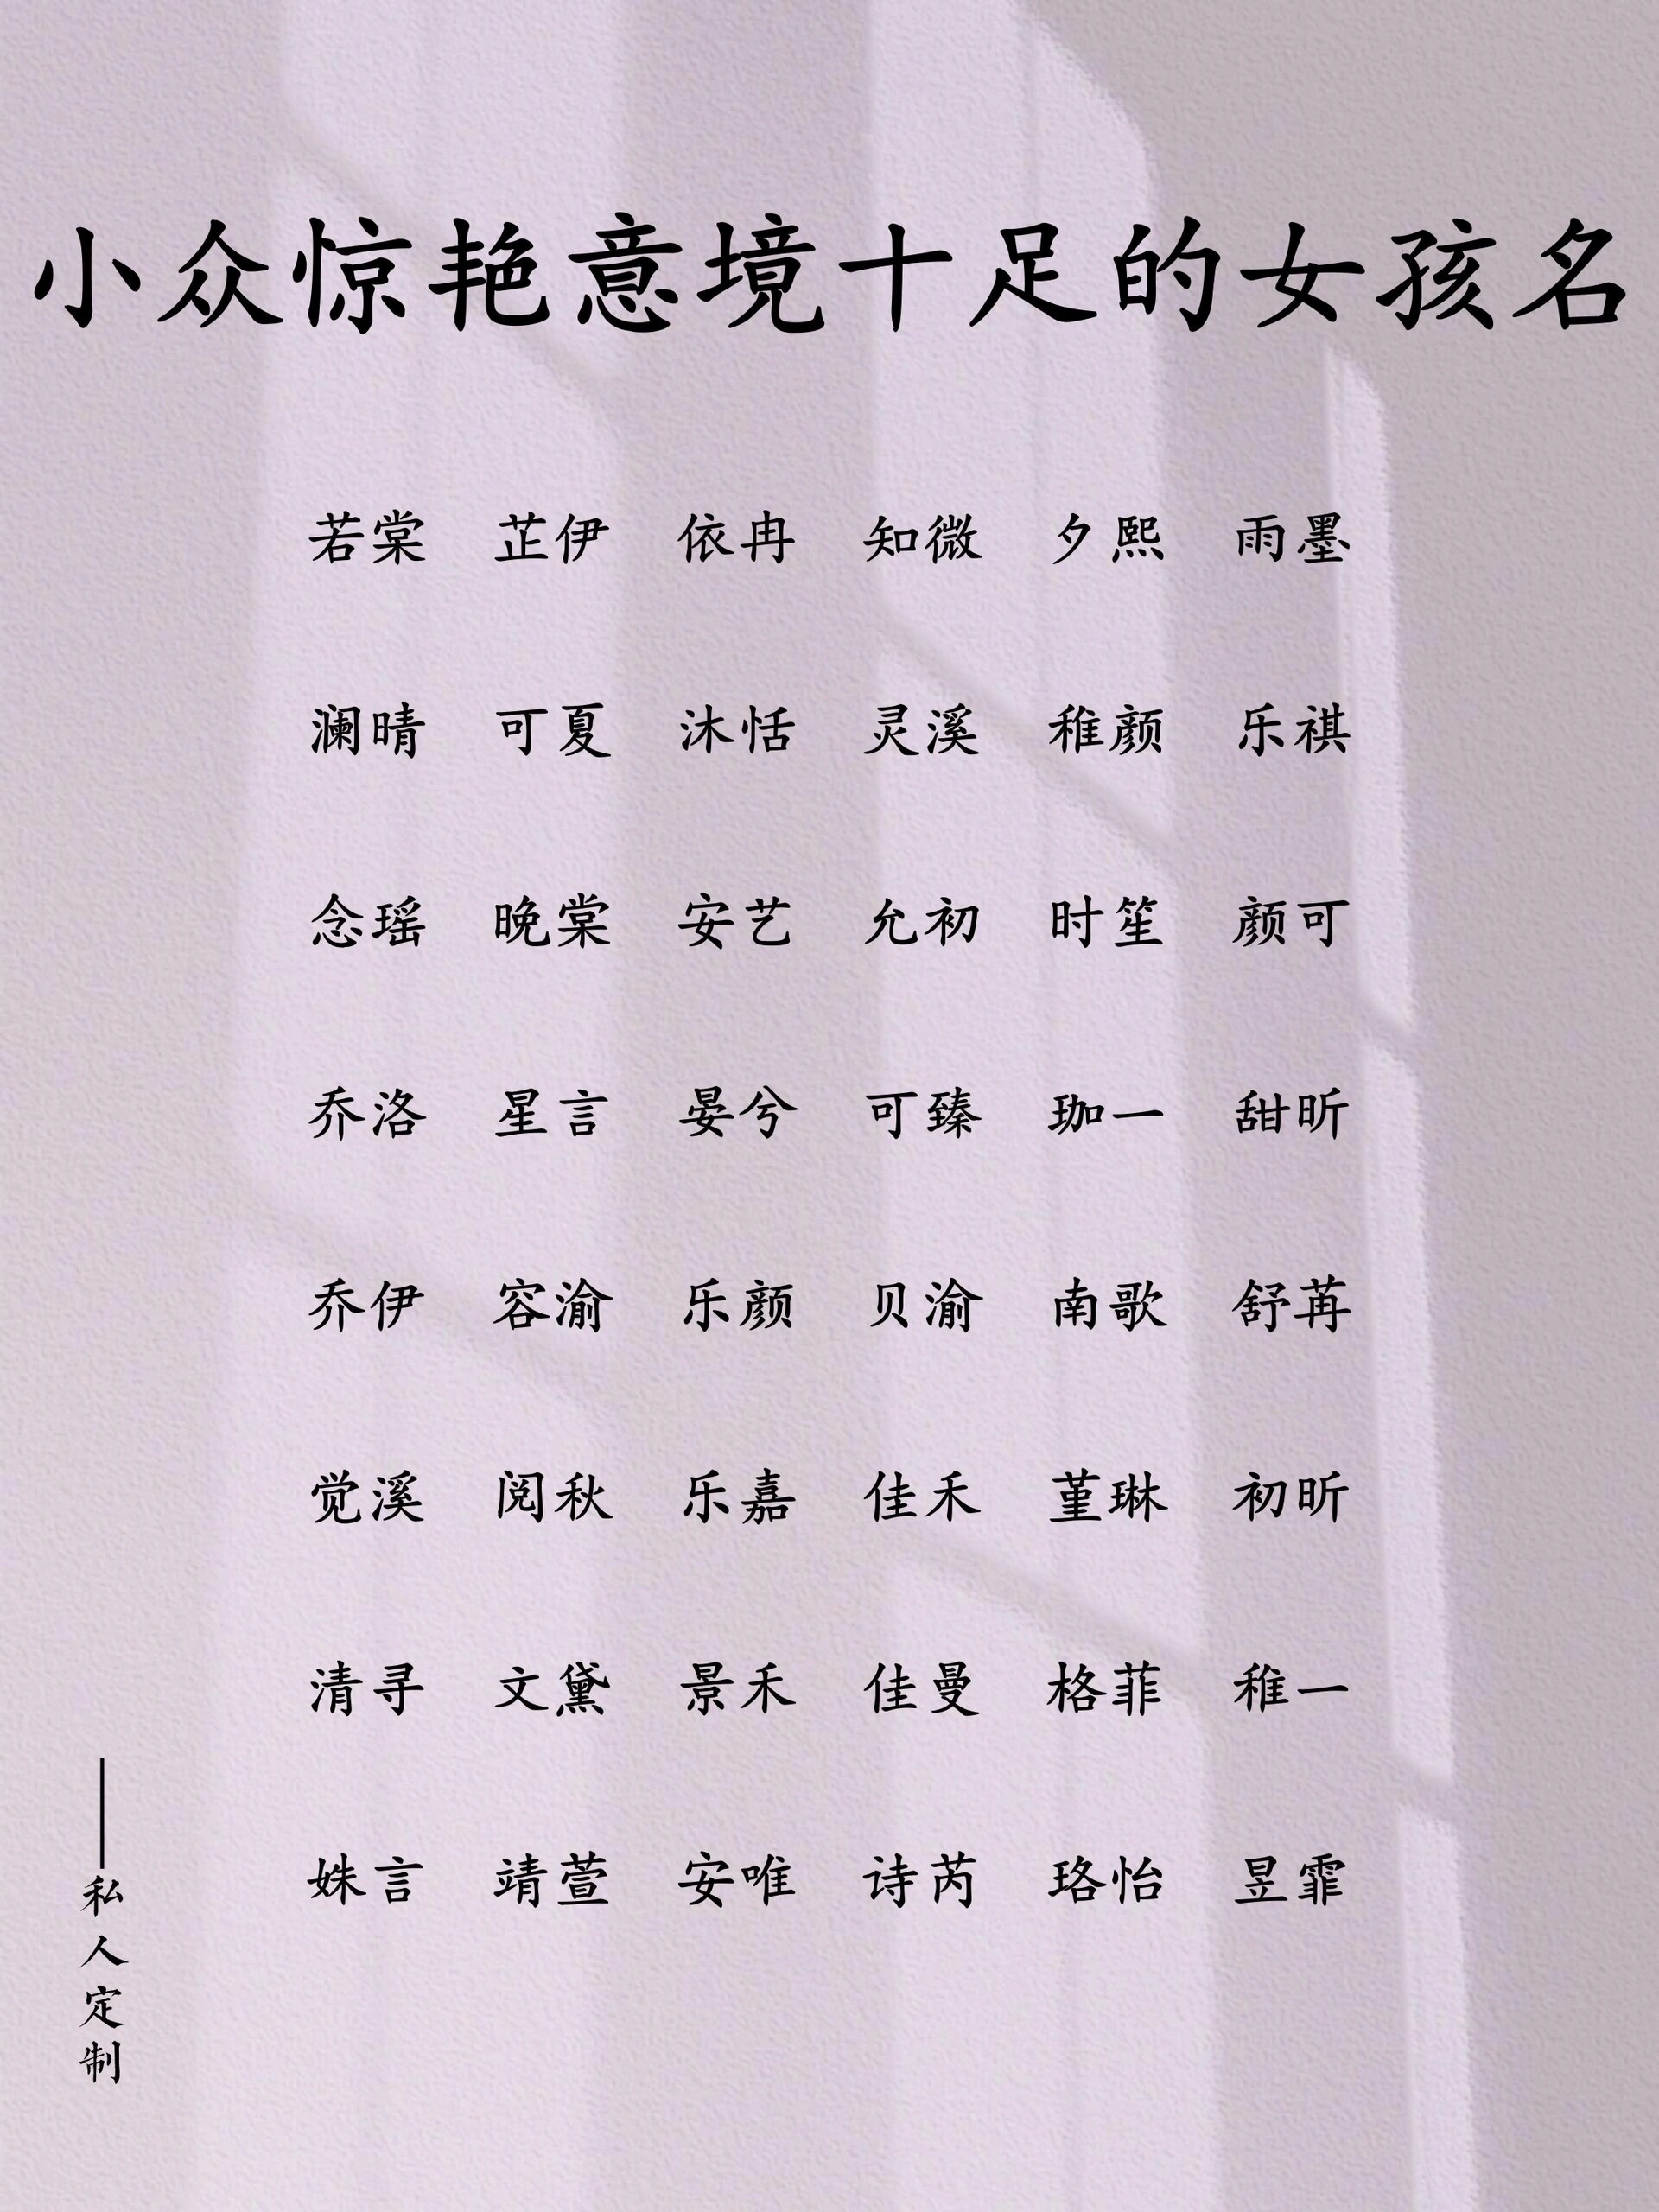 小众惊艳意境十足的女孩名
若棠 芷伊 依冉 知微 夕熙 雨墨
澜晴 可夏 沐恬 灵溪 稚颜 乐祺
念瑶 晚棠 安艺 允初 时笙 颜可
乔洛 星言 晏兮 可臻 珈一 甜昕
乔伊 容渝 乐颜 贝渝 南歌 舒苒
觉溪 阅秋 乐嘉 佳禾 堇琳 初昕
清寻 文黛 景禾 佳曼 格菲 稚一
姝言 靖萱 安唯 诗芮 珞怡 昱霏
——私人定制